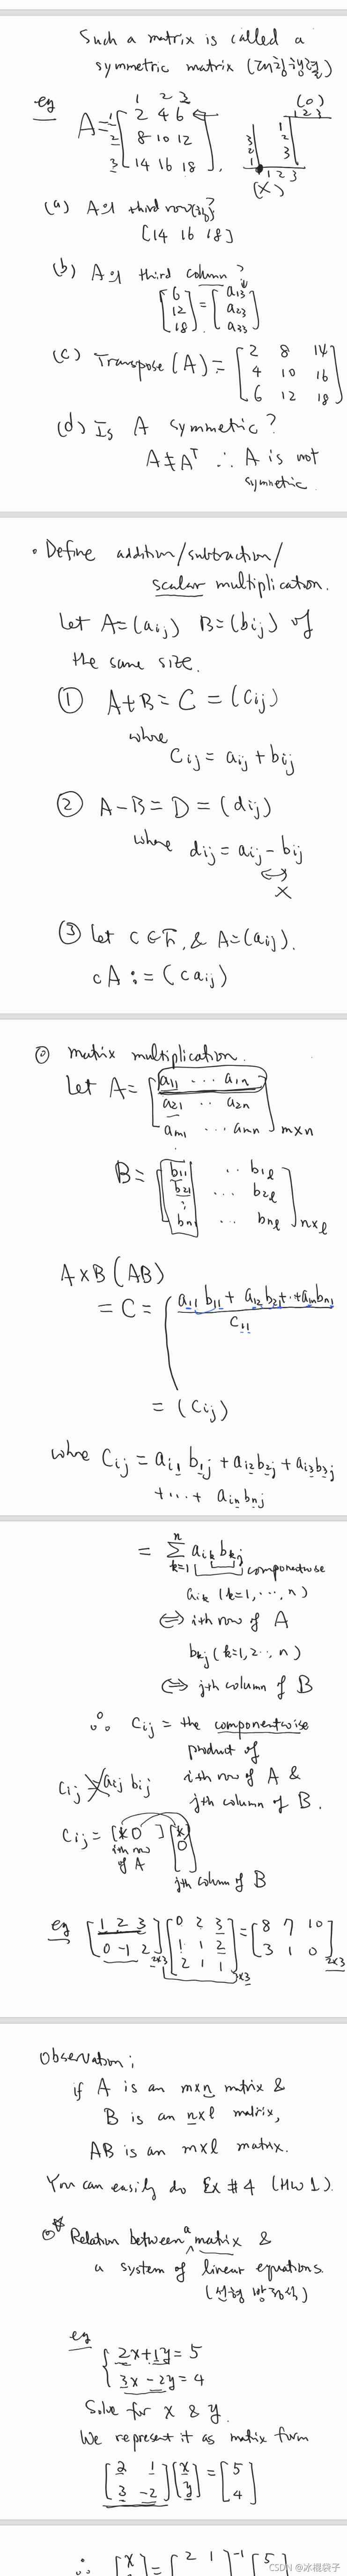 Such a matrix is called a
symmetric matrix (대칭행렬)
eg A = [2 4 6; 8 10 12; 14 16 18].
1 2 3
1 2 3
(O)
1 2 3
1 2 3
3 2 1
1 2 3
(X)
(a) A의 third row(행)?
[14 16 18]
(b) A의 third column?
[6; 12; 18] = [a13; a23; a33]
(c) Transpose (A) = [2 8 14; 4 10 16; 6 12 18]
(d) Is A symmetric?
A ≠ A^T ∴ A is not
symmetric.
• Define addition/subtraction/
scalar multiplication.
Let A=(aij) B=(bij) of
the same size.
① A+B = C = (cij)
where
cij = aij + bij
② A-B = D = (dij)
where dij = aij - bij
↔
X
③ Let c ∈ F, & A=(aij).
cA := (c aij)
⊙ matrix multiplication.
Let A = [a11 ... a1n; a21 .. a2n; am1 ... amn] m×n
B = [b11 .. b1l; b21 ... b2l; ⋮; bn1 ... bnl] n×l
A×B (AB)
= C = [a11 b11 + a12 b21 + ·· + a1n bn1
c11
= (cij)
where cij = ai1 b1j + ai2 b2j + ai3 b3j
+ ... + ain bnj
= Σ k=1 n aik bkj componentwise
aik (k=1, ..., n)
⇔ ith row of A
bkj (k=1,2..,n)
⇔ jth column of B
∴ cij = the componentwise
product of
cij ≠ aij bij ith row of A &
jth column of B.
cij = [* 0 ] [*; 0]
ith row
of A
jth column of B
eg [1 2 3; 0 -1 2] 2×3 [0 2 3; 1 1 2; 2 1 1] 3×3 = [8 7 10; 3 1 0] 2×3
Observation;
if A is an m×n matrix &
B is an n×l matrix,
AB is an m×l matrix.
You can easily do Ex #4 (HW 1).
⊙ ☆ Relation between a matrix &
a system of linear equations.
(선형 방정식)
eg { 2x+1y = 5
3x -2y = 4
Solve for x & y.
We represent it as matrix form
[2 1; 3 -2] [x; y] = [5; 4]
∴ [x = [2 1]^-1 [5]
CSDN @冰棍袋子